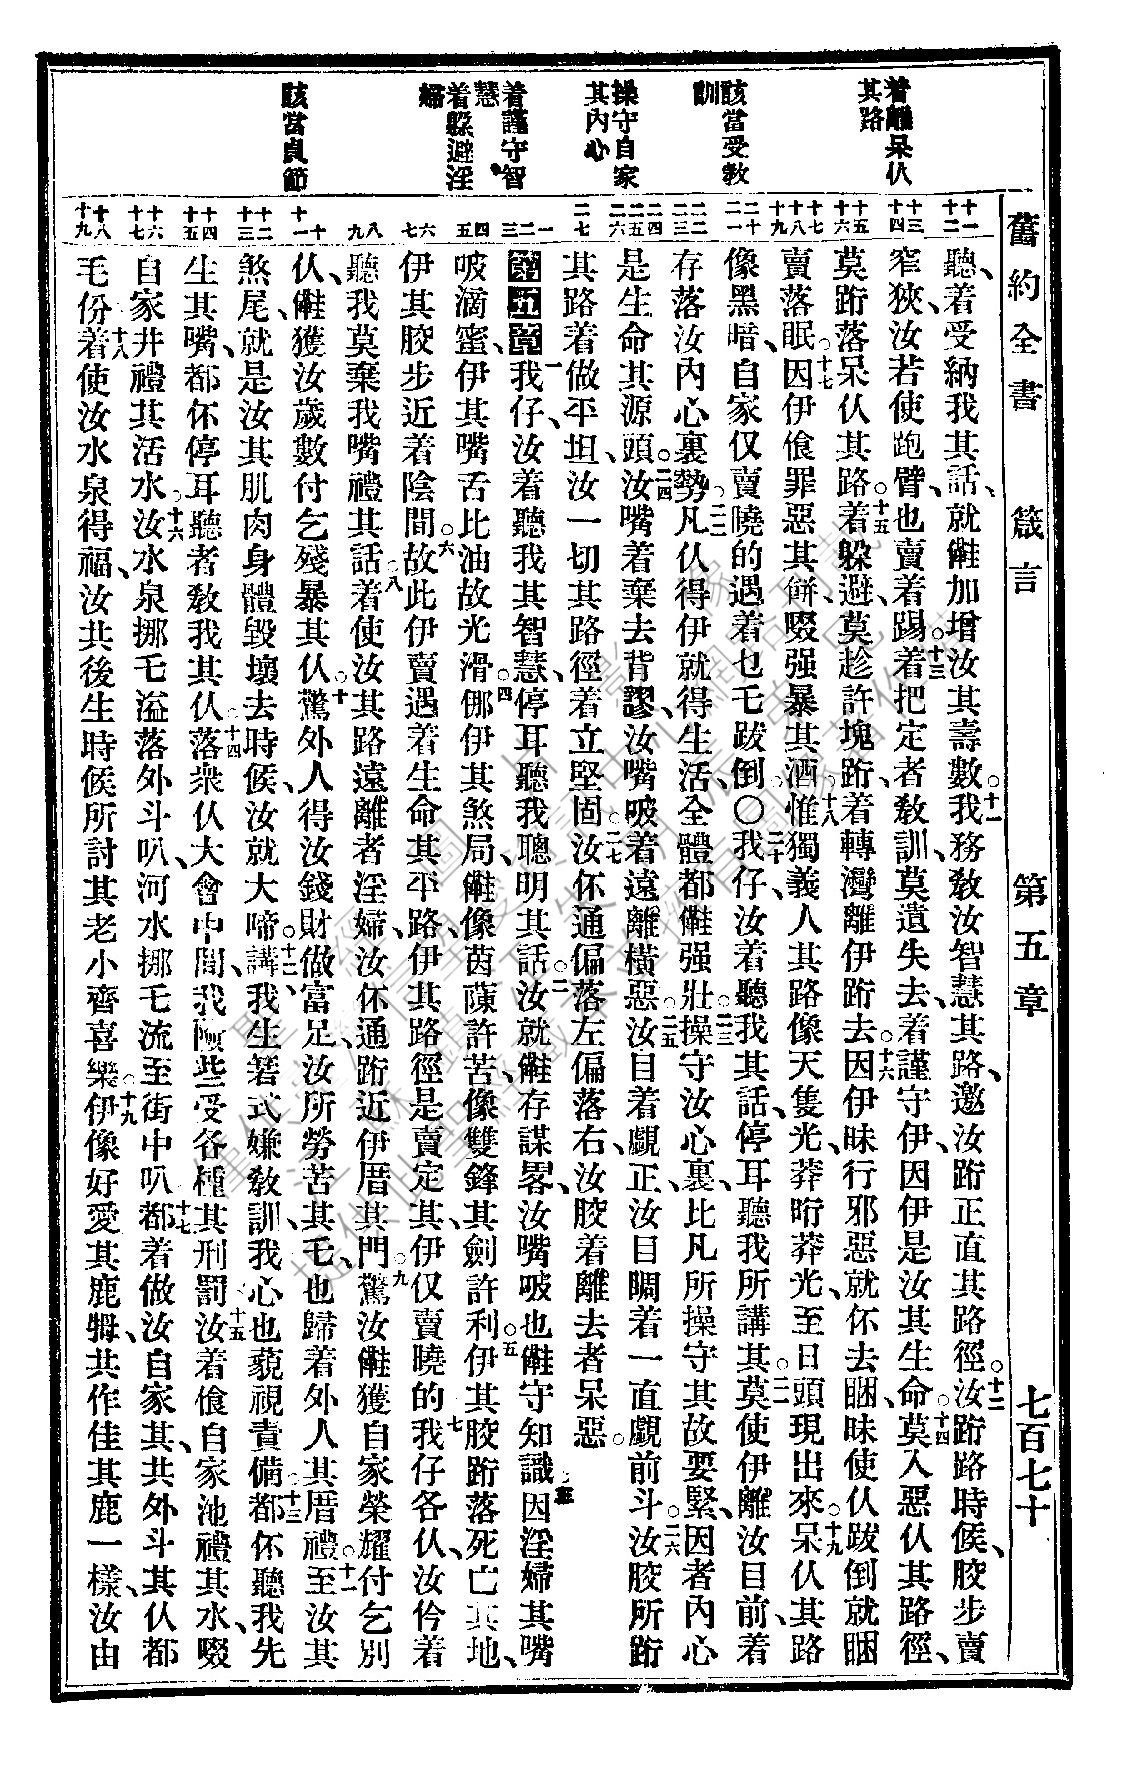 舊約全書 箴言 第五章 七百七十
着離呆仈
其路
該當受教
訓
操守自家
其內心
着謹守智
慧
着躱避淫
婦
該當貞節
聽、着受納我其話、就㑚加增汝其壽數。十一我務敎汝智慧其路、邀汝𨀣正直其路徑。十二汝𨀣路時候、胶步賣
窄狹、汝若使跑臂、也賣着踢着。十三把定者敎訓、莫遺失去、着謹守伊、因伊是汝其生命。十四莫入惡仈其路徑、
莫𨀣落呆仈其路。十五着躱避、莫趁許塊𨀣、着轉灣離伊𨀣去。十六因伊昧行邪惡、就伓去睏、昧使仈跋倒就睏
賣落眠。十七因伊飡罪惡其餅、啜强暴其酒。十八惟獨義人其路像天隻光、莽𨀣莽光、至日頭現出來。十九呆仈其路
像黑暗、自家仅賣曉的遇着乜乇跋倒〇二十我仔、汝着聽我其話、停耳聽我所講其。二一莫使伊離汝目前、着
存落汝內心裏勢。二二凡仈得伊就得生活、全體都㑚强壯。二三操守汝心裏、比凡所操守其故要緊、因者內心
是生命其源頭。二四汝嘴着棄去背謬、汝嘴㕷着遠離橫惡。二五汝目着覷正、汝目睭着一直覷前斗。二六汝胶所𨀣
其路着做平坦、汝一切其路徑着立堅固。二七汝伓通偏落左偏落右、汝胶着離去者呆惡。
第五章一我仔、汝着聽我其智慧、停耳聽我聰明其話。二汝就㑚存謀畧、汝嘴㕷也㑚守知識。三因淫婦其嘴
㕷滴蜜、伊其嘴舌比油故光滑。四㑚伊其煞局、㑚像茵蔯許苦、像雙鋒其劍許利。五伊其胶𨀣落死亡其地、
伊其胶步近着陰間。六故此伊賣遇着生命其平路、伊其路徑是賣定其、伊仅賣曉的。七我仔各仈、汝仱着
聽我、莫棄我嘴禮其話。八着使汝其路遠離者淫婦、汝伓通𨀣近伊厝其門。九驚汝㑚獲自家榮耀付乞別
仈、㑚獲汝歲數付乞殘暴其仈。十驚外人得汝錢財做富足、汝所勞苦其乇、也歸着外人其厝禮。十一至汝其
煞尾、就是汝其肌肉身體毀壞去時候、汝就大啼。十二講、我生箬式嫌敎訓、我心也藐視責備。十三都伓聽我先
生其嘴、都伓停耳聽者敎我其仈。十四落衆仈大會中間、我險些受各種其刑罰。十五汝着飡自家池禮其水、啜
自家井禮其活水。十六汝水泉挪乇溢落外斗叭、河水挪乇流至街中叭。十七都着做汝自家其、共外斗其仈都
乇份。十八着使汝水泉得福、汝共後生時候所討其老小齊喜樂。十九伊像好愛其鹿牳、共作佳其鹿一樣、汝由